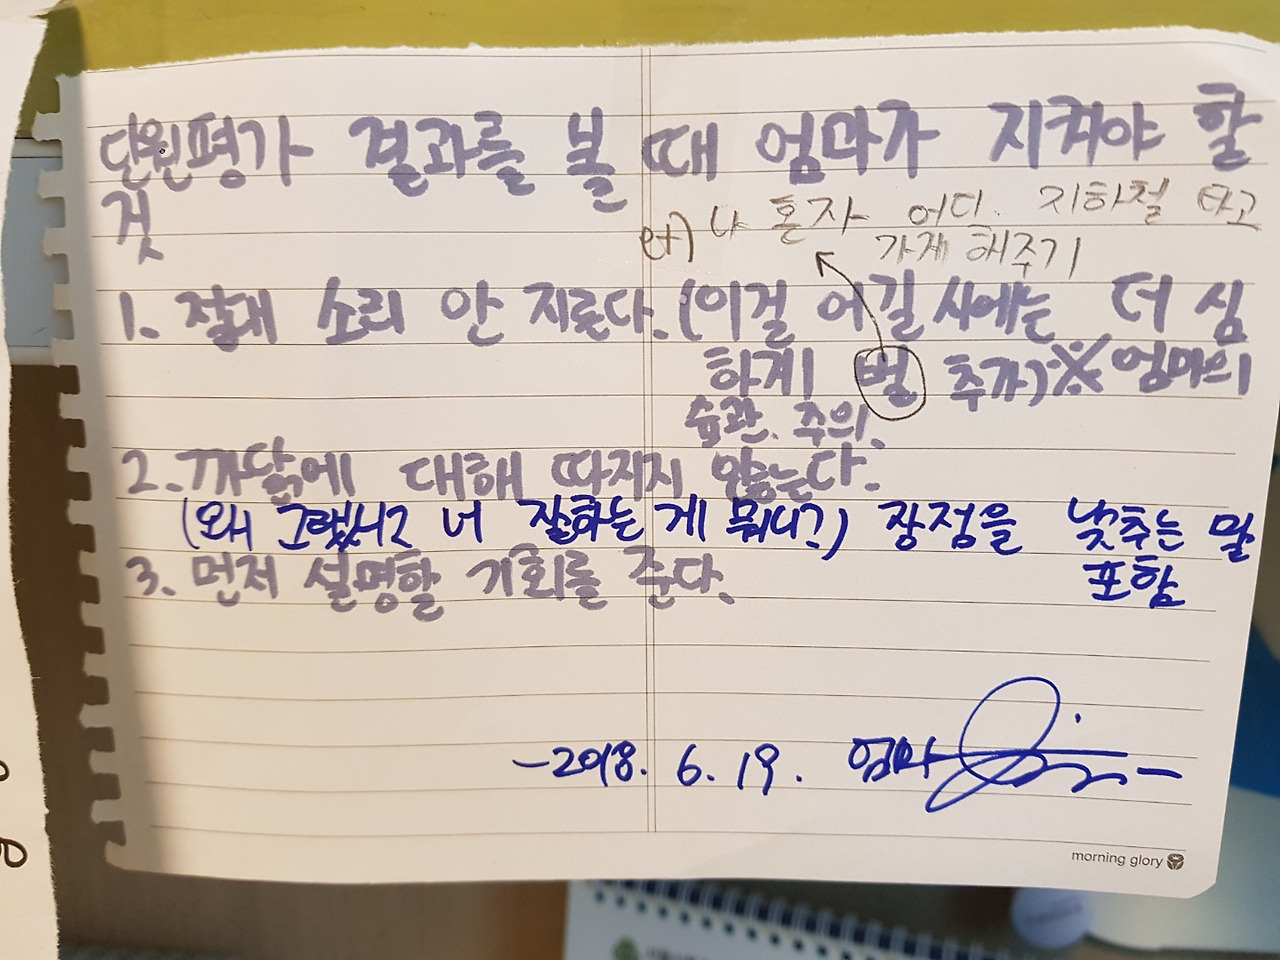 단원평가 결과를 볼 때 엄마가 지켜야 할
것
ex) 나 혼자 어디 지하철 타고
가게 해주기
1. 절대 소리 안 지른다. (이걸 어길 시에는 더 심
하게 벌 추가) ※ 엄마의
습관. 주의.
2. 까닭에 대해 따지지 않는다.
(왜 그랬어? 너 잘하는 게 뭐니?) 장점을 낮추는 말
포함
3. 먼저 설명할 기회를 준다.
-2018. 6. 19. 엄마
morning glory